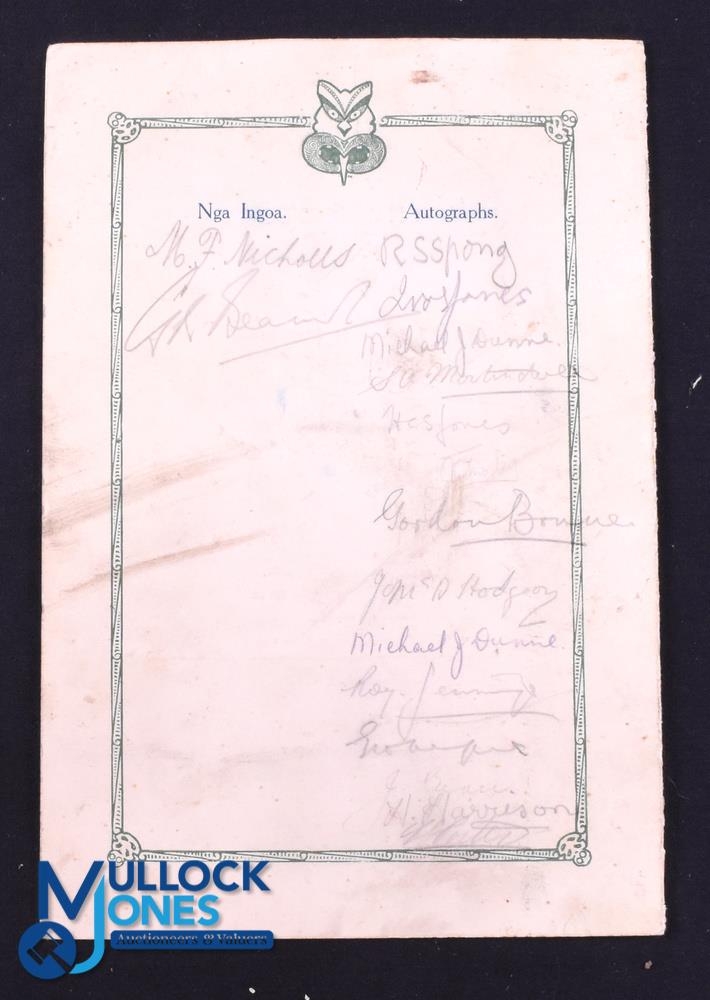 Nga Ingoa. Autographs.
M. F. Nicholls RSSpong
Ivor Jones
Michael J Dunne.
H C S Jones
Gordon Bonner
J McD Hodgson
Michael J Dunne.
Roy Jennings
H. Harrison
MULLOCK
JONES
Auctioneers & Valuers